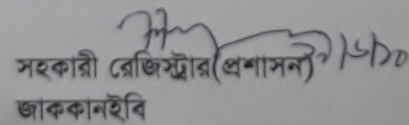 সহকারী রেজিস্ট্রার(প্রশাসন)
জাককানইবি